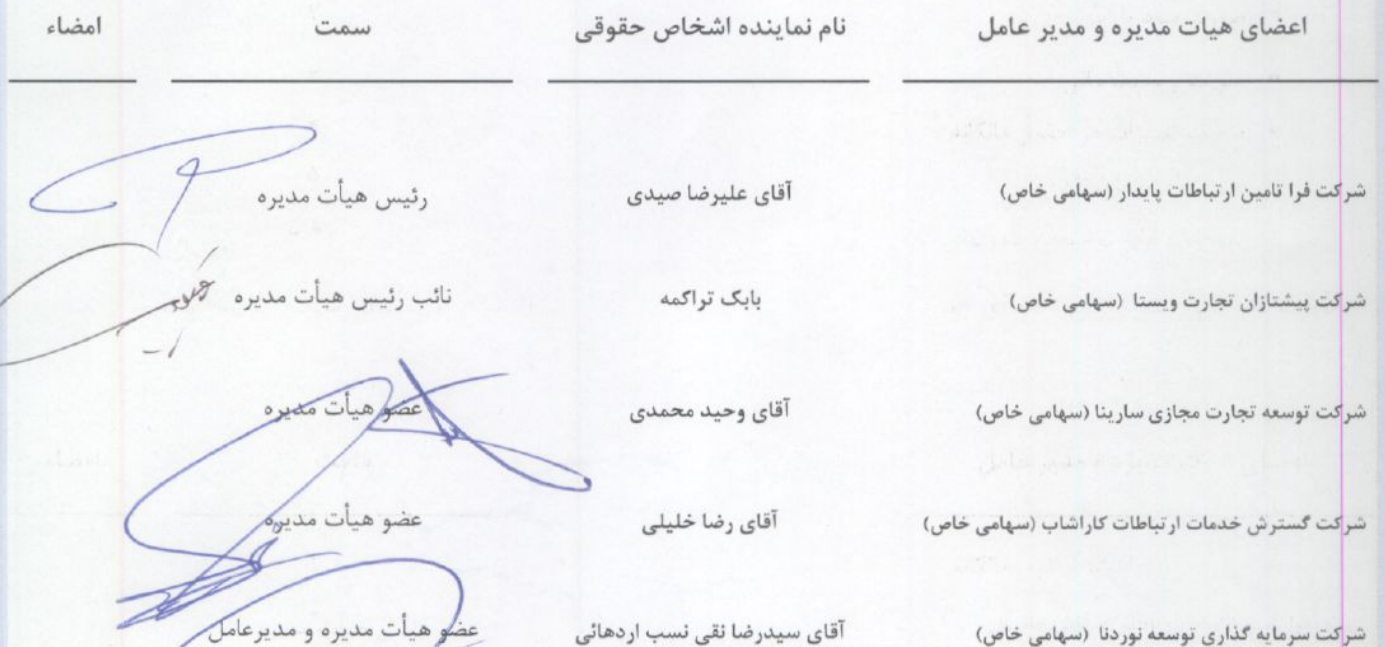 اعضای هیات مدیره و مدیر عامل نام نماینده اشخاص حقوقی سمت امضاء
شرکت فرا تامین ارتباطات پایدار (سهامی خاص) آقای علیرضا صیدی رئیس هیأت مدیره
شرکت پیشتازان تجارت ویستا (سهامی خاص) بابک تراکمه نائب رئیس هیأت مدیره
شرکت توسعه تجارت مجازی سارینا (سهامی خاص) آقای وحید محمدی عضو هیأت مدیره
شرکت گسترش خدمات ارتباطات کاراشاب (سهامی خاص) آقای رضا خلیلی عضو هیأت مدیره
شرکت سرمایه گذاری توسعه نوردنا (سهامی خاص) آقای سیدرضا نقی نسب اردهائی عضو هیأت مدیره و مدیرعامل